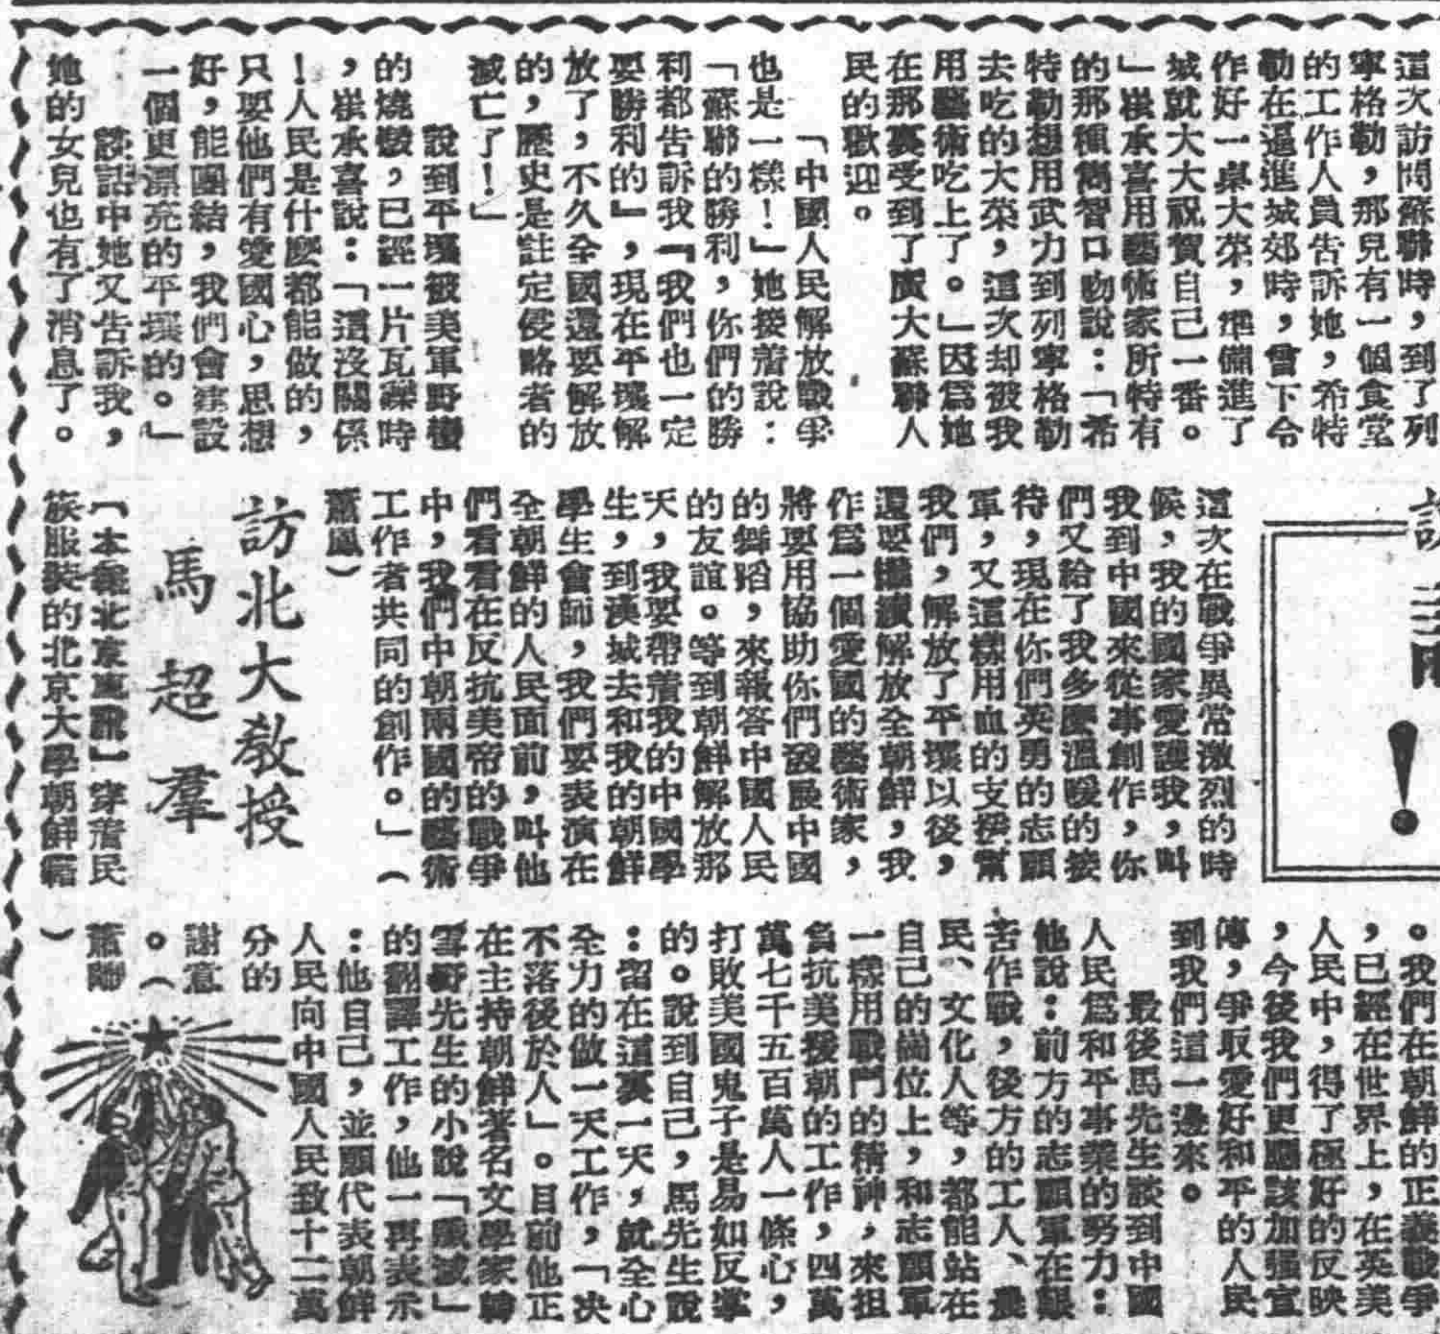 這次訪問蘇聯時，到了列
寧格勒，那兒有一個食堂
的工作人員告訴她，希特
勒在逼進城郊時，曾下令
作好一桌大菜，準備進了
城就大大祝賀自己一番。
」崔承喜用藝術家所特有
的那種簡智口吻說：「希
特勒想用武力到列寧格勒
去吃的大菜，這次却被我
用藝術吃上了。」因爲她
在那裏受到了廣大蘇聯人
民的歡迎。
「中國人民解放戰爭
也是一樣！」她接着說：
「蘇聯的勝利，你們的勝
利都告訴我『我們也一定
要勝利的』，現在平壤解
放了，不久全國還要解放
的，歷史是註定侵略者的
滅亡了！」
說到平壤被美軍野蠻
的燒燬，已經一片瓦礫時
，崔承喜說：「這沒關係
！人民是什麽都能做的，
只要他們有愛國心，思想
好，能團結，我們會建設
一個更漂亮的平壤的。」
談話中她又告訴我，
她的女兒也有了消息了。
這次在戰爭異常激烈的時
候，我的國家愛護我，叫
我到中國來從事創作，你
們又給了我多麽溫暖的接
待，現在你們英勇的志願
軍，又這樣用血的支援幫
我們，解放了平壤以後，
還要繼續解放全朝鮮，我
作爲一個愛國的藝術家，
將要用協助你們發展中國
的舞蹈，來報答中國人民
的友誼。等到朝鮮解放那
天，我要帶着我的中國學
生，到漢城去和我的朝鮮
學生會師，我們要表演在
全朝鮮的人民面前，叫他
們看看在反抗美帝的戰爭
中，我們中朝兩國的藝術
工作者共同的創作。」（
蕭鳳）
訪北大教授
馬超羣
【本報北京專訊】穿着民
族服裝的北京大學朝鮮籍
。我們在朝鮮的正義戰爭
，已經在世界上，在英美
人民中，得了極好的反映
，今後我們更應該加强宣
傳，爭取愛好和平的人民
到我們這一邊來。
最後馬先生談到中國
人民爲和平事業的努力：
他說：前方的志願軍在艱
苦作戰，後方的工人、農
民、文化人等，都能站在
自己的崗位上，和志願軍
一樣用戰鬥的精神，來担
負抗美援朝的工作，四萬
萬七千五百萬人一條心，
打敗美國鬼子是易如反掌
的。說到自己，馬先生說
：留在這裏一天，就全心
全力的做一天工作，「决
不落後於人」。目前他正
在主持朝鮮著名文學家韓
雪野先生的小說「殲滅」
的翻譯工作，他一再表示
：他自己，並願代表朝鮮
人民向中國人民致十二萬
分的
謝意
。（
蕭離
）